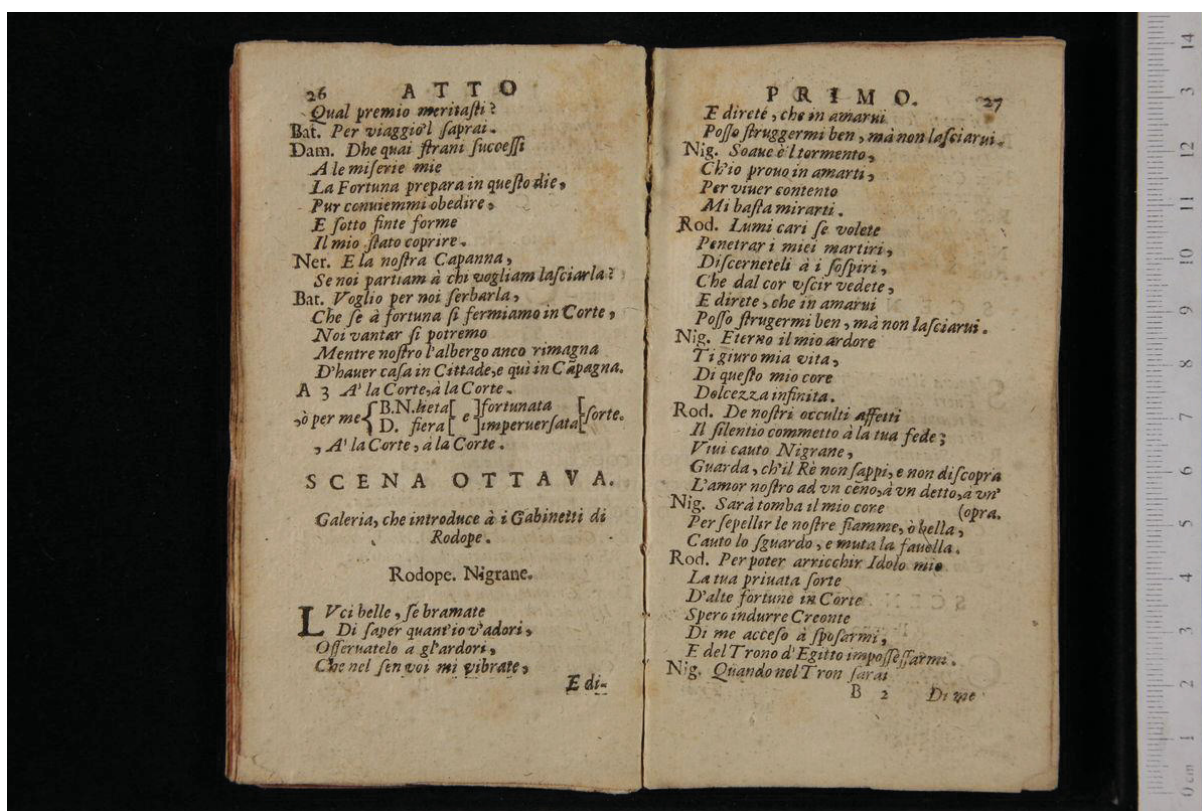 26 ATTO
Qual premio meritasti?
Bat. Per viaggio'l saprai.
Dam. Dhe quai strani sucoessi
A le miserie mie
La Fortuna prepara in questo die,
Pur conuiemmi obedire,
E sotto finte forme
Il mio stato coprire.
Ner. E la nostra Capanna,
Se noi partiam à chi vogliam lasciarla?
Bat. Voglio per noi serbarla,
Che se à fortuna si fermiamo in Corte,
Noi vantar si potremo
Mentre nostro l'albergo anco rimagna
D'hauer casa in Cittade, e quì in Cãpagna.
A 3 A' la Corte, à la Corte.
,ò per me { B.N. lieta [ e ] fortunata [ sorte.
D. fiera [ ] imperuersata [
, A' la Corte, à la Corte.
SCENA OTTAVA.
Galeria, che introduce à i Gabinetti di
Rodope.
Rodope. Nigrane.
LVci belle, se bramate
Di saper quant'io v'adori,
Osseruatelo a gl'ardori,
Che nel sen voi mi vibrate,
E di-
PRIMO. 27
E direte, che in amarui
Posso struggermi ben, mà non lasciarui.
Nig. Soaue è'l tormento,
Ch'io prouo in amarti,
Per viuer contento
Mi basta mirarti.
Rod. Lumi cari se volete
Penetrar i miei martiri,
Discerneteli à i sospiri,
Che dal cor vscir vedete,
E direte, che in amarui
Posso strugermi ben, mà non lasciarui.
Nig. Eterno il mio ardore
Ti giuro mia vita,
Di questo mio core
Dolcezza infinita.
Rod. De nostri occulti affetti
Il silentio commetto à la tua fede;
Viui cauto Nigrane,
Guarda, ch'il Rè non sappi, e non discopra
L'amor nostro ad vn ceno, à vn detto, a vn'
Nig. Sarà tomba il mio core (opra.
Per sepellir le nostre fiamme, ò bella,
Cauto lo sguardo, e muta la fauella.
Rod. Per poter arricchir Idolo mio
La tua priuata sorte
D'alte fortune in Corte
Spero indurre Creonte
Di me acceso à sposarmi,
E del Trono d'Egitto impossessarmi.
Nig. Quando nel Tron sarai
B 2 Di me
0 cm 1 2 3 4 5 6 7 8 9 10 12 3 14